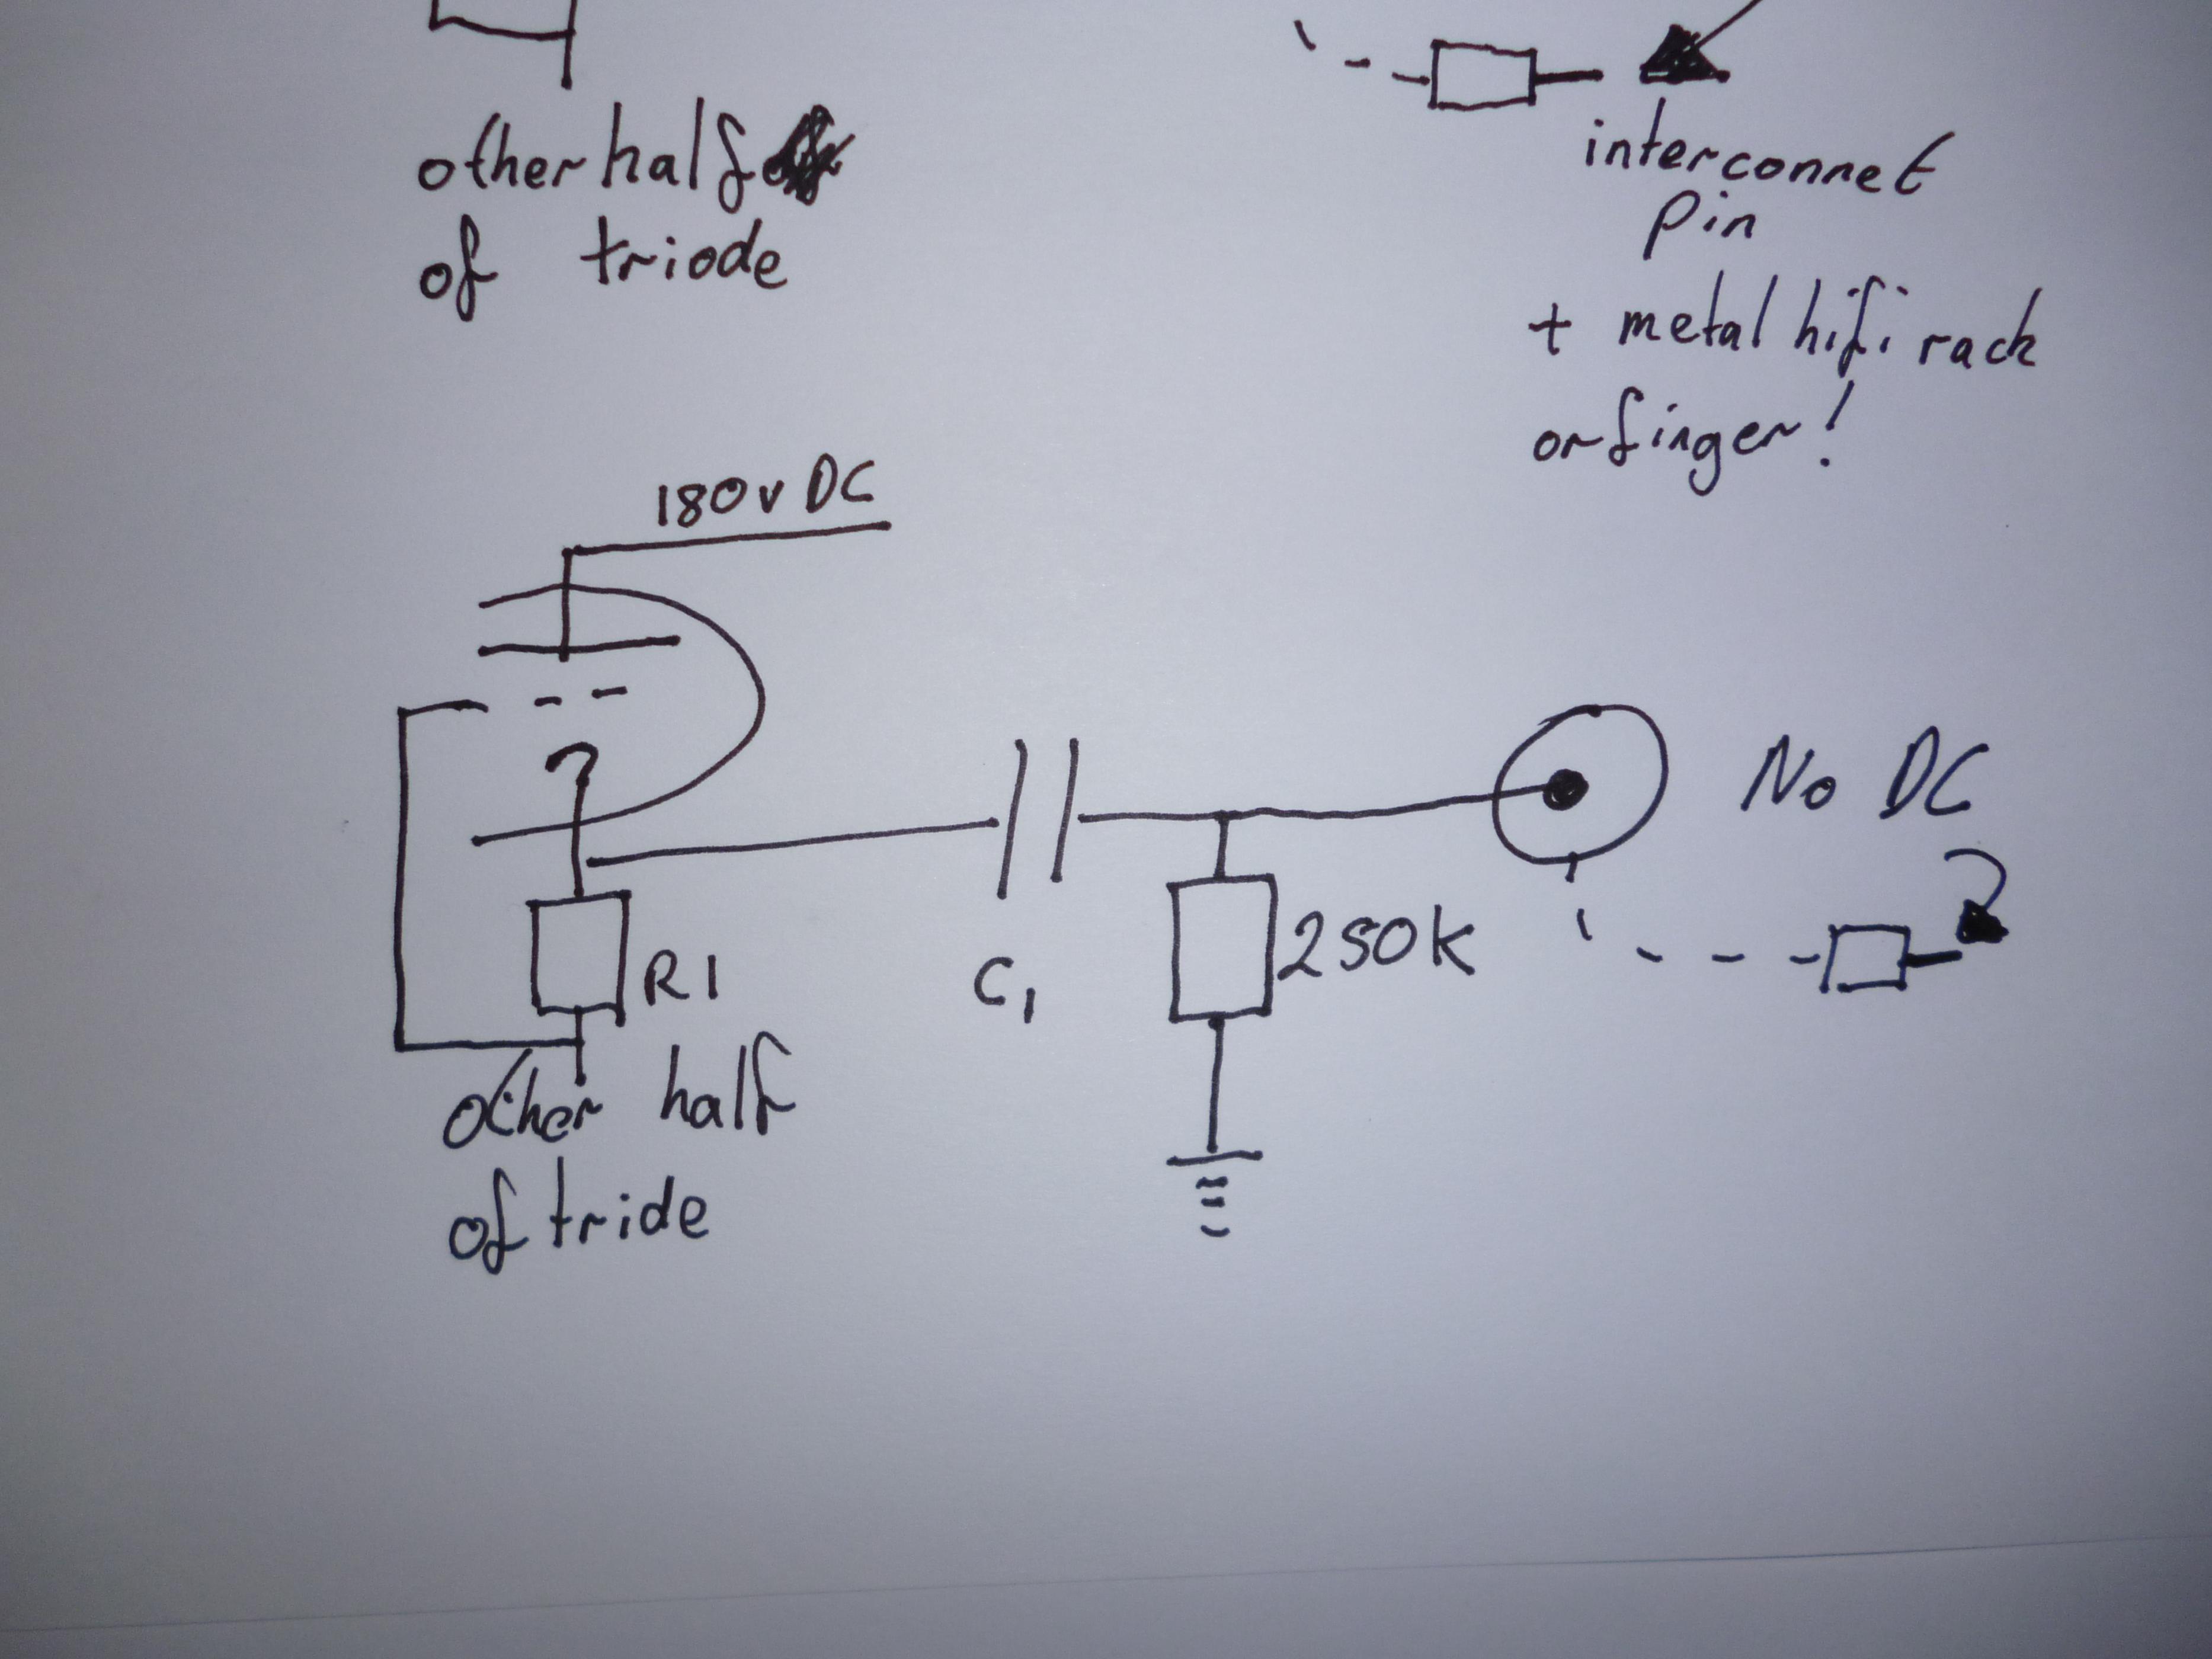 other half
of triode
interconnet
pin
+ metal hifi rack
or finger!
180v DC
No DC
R1
C1
250k
other half
of tride